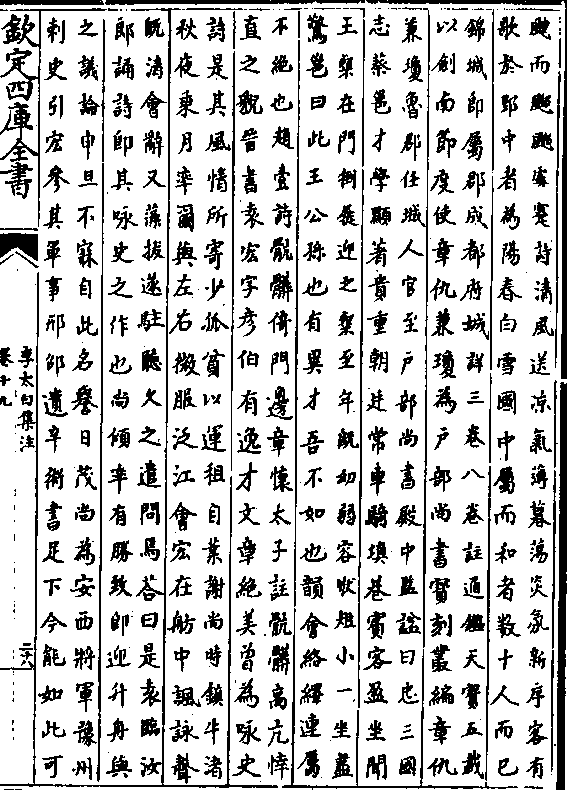 颸而颸颸盧蹇詩清風送凉氣薄暮蕩炎氛新序客有
歌於郢中者為陽春白雪國中屬而和者數十人而已
錦城即屬郡成都府城詳三卷八卷註通鑑天寳五載
以劍南節度使章仇兼瓊為户部尚書寳刻叢編章仇
兼瓊魯郡任城人官至户部尚書殿中監諡曰忠三國
志蔡邕才學顯著貴重朝廷常車騎填巷賓客盈坐聞
王粲在門倒屣迎之粲至年既幼弱容狀短小一坐盡
驚邕曰此王公孫也有異才吾不如也韻會絡繹連屬
不絶也趙壹詩骯髒倚門邊章懷太子註骯髒高亢婞
直之貌晉書袁宏字彦伯有逸才文章絶美曽為咏史
詩是其風情所寄少孤貧以運租自業謝尚時鎮牛渚
秋夜乘月率爾與左右微服泛江會宏在舫中諷詠聲
既清會辭又藻拔遂駐聽久之遣問焉答曰是袁臨汝
郎誦詩即其咏史之作也尚傾率有勝致即迎升舟與
之議論申旦不寐自此名譽日茂尚為安西將軍豫州
刺史引宏參其軍事邢邵遺辛術書足下今能如此可
欽定四庫全書
李太白集注
卷十九
二六